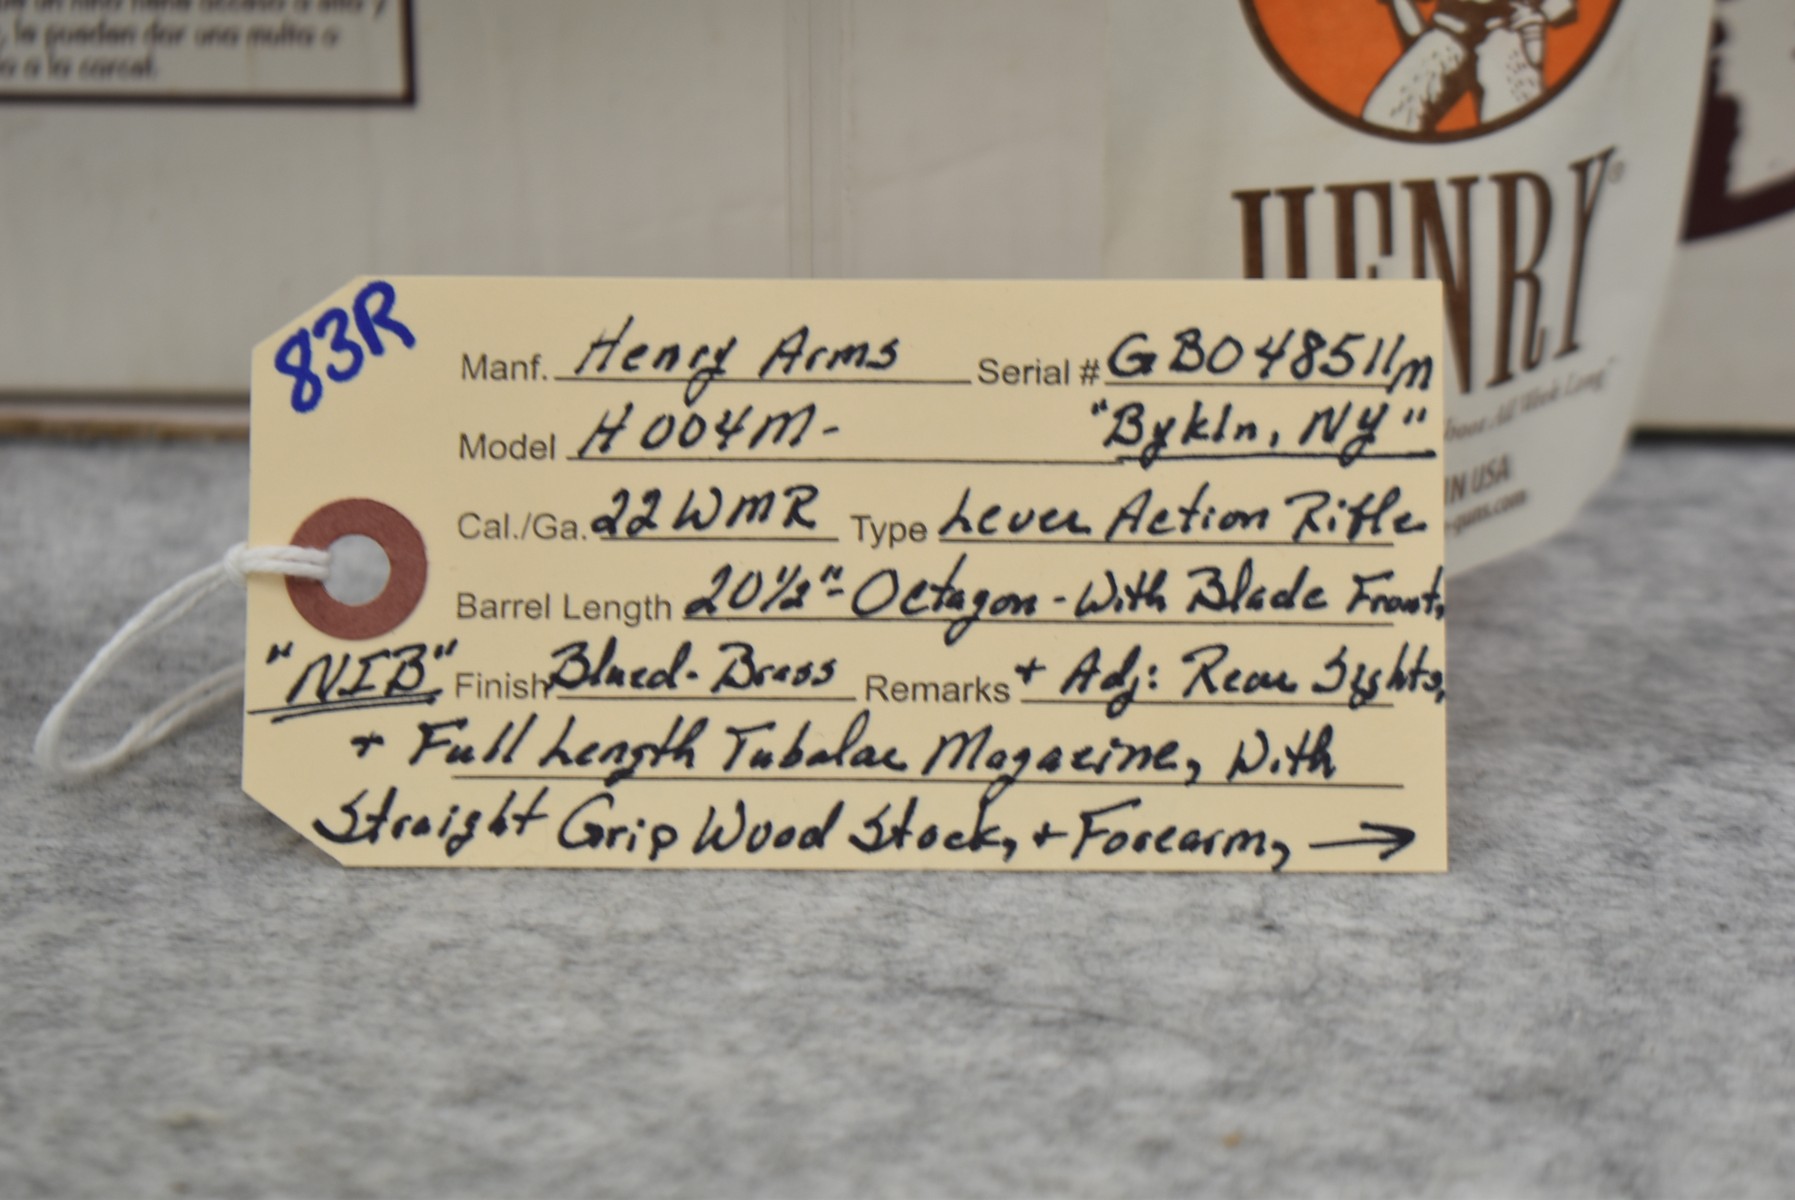 la pueden dar una multa o
a la carcel.
HENRY®
IN USA
83R
Manf. Henry Arms Serial # GB048511m
Model H004M- "Bykln, NY"
Cal./Ga. 22 WMR Type Lever Action Rifle
Barrel Length 20½"- Octagon - With Blade Front,
"NIB" Finish Blued- Brass Remarks + Adj: Rear Sights,
+ Full Length Tubular Magazine, With
Straight Grip Wood Stock, + Forearm, →